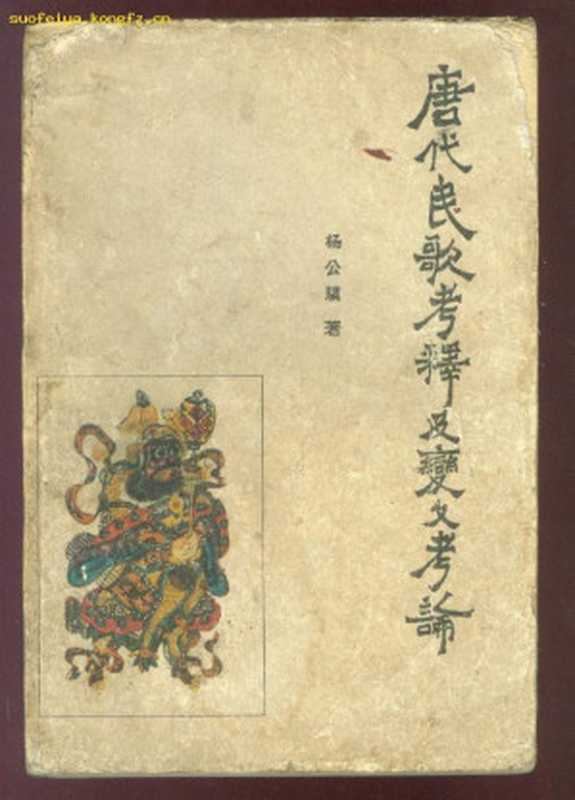 suofeiya.kongfz.cn
唐代民歌考釋及變文考論
杨公骥 著